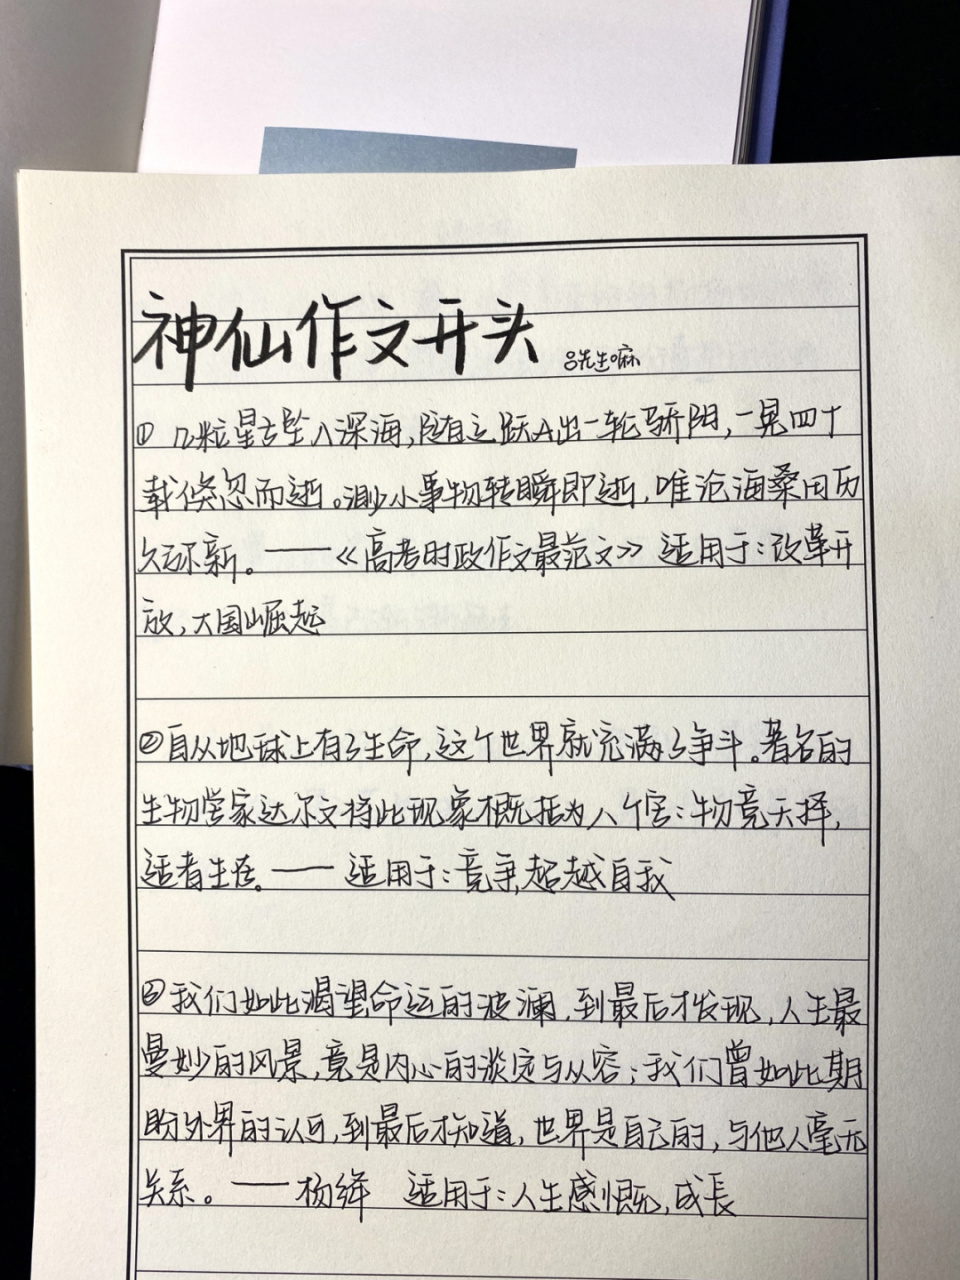 神仙作文开头 吕先生嘛
① 几粒星子坠入深海,随之跃出一轮骄阳,一晃四十
载倏忽而逝。渺小事物转瞬即逝,唯沧海桑田历
久弥新。——《高考时政作文最范文》 适用于:改革开
放,大国崛起
②自从地球上有了生命,这个世界就充满了争斗。著名的
生物学家达尔文将此现象概括为八个字:物竞天择,
适者生存。—— 适用于:竞争,超越自我
③我们如此渴望命运的波澜,到最后才发现,人生最
曼妙的风景,竟是内心的淡定与从容;我们曾如此期
盼外界的认可,到最后才知道,世界是自己的,与他人毫无
关系。——杨绛 适用于:人生感慨,成长